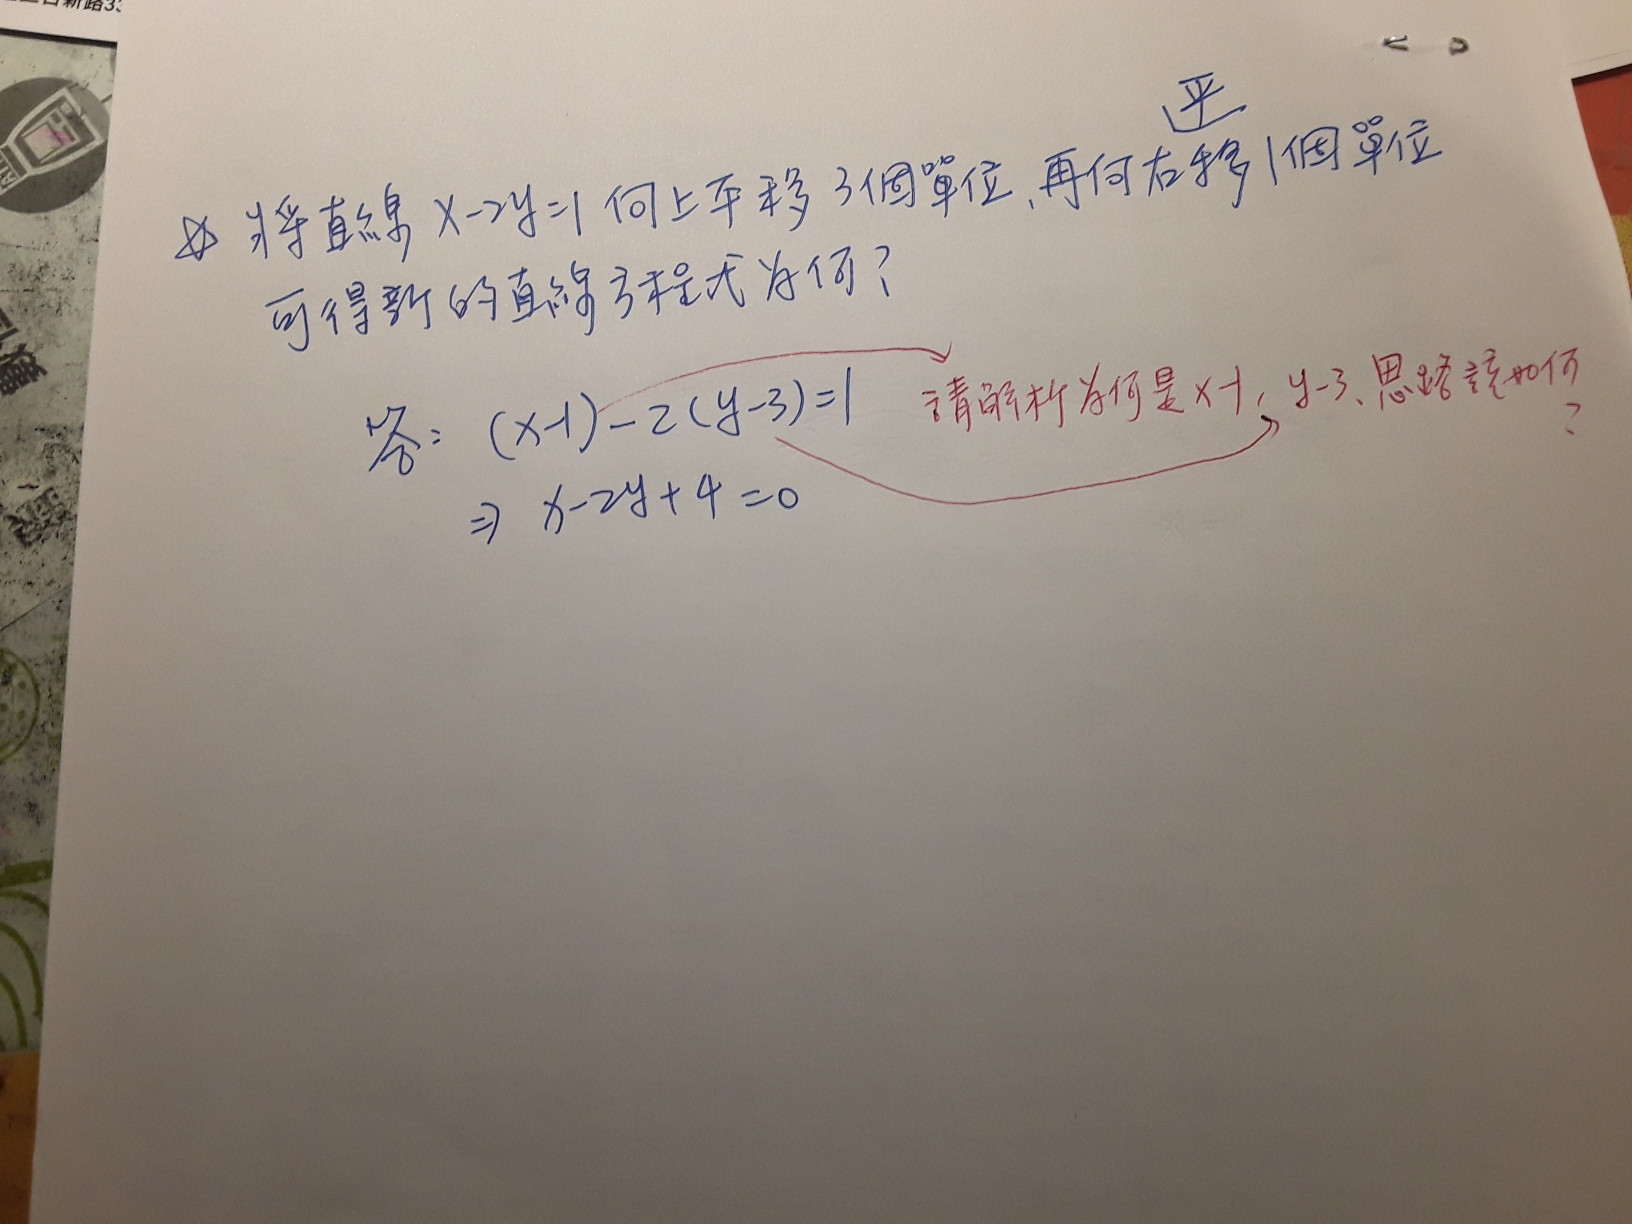 平
☆ 將直線 x-2y=1 向上平移 3個單位、再向右移1個單位
可得新的直線方程式為何?
答: (x-1)-2(y-3)=1 請解析為何是x-1, y-3、思路該如何
?
⇒ x-2y+4=0